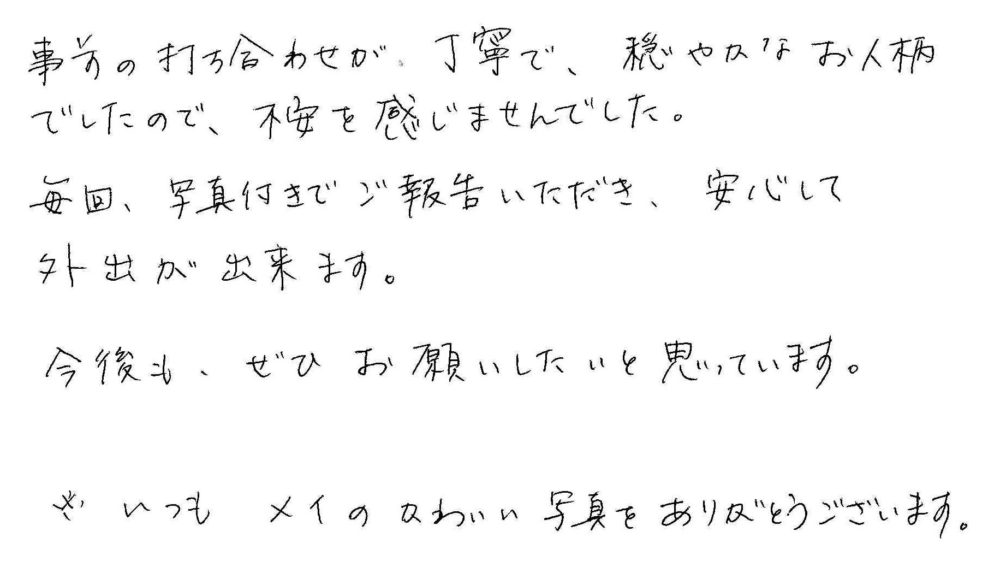 事前の打ち合わせが、丁寧で、穏やかなお人柄
でしたので、不安を感じませんでした。
毎回、写真付きでご報告いただき、安心して
外出が出来ます。
今後も、ぜひお願いしたいと思っています。
※いつもメイのかわいい写真をありがとうございます。